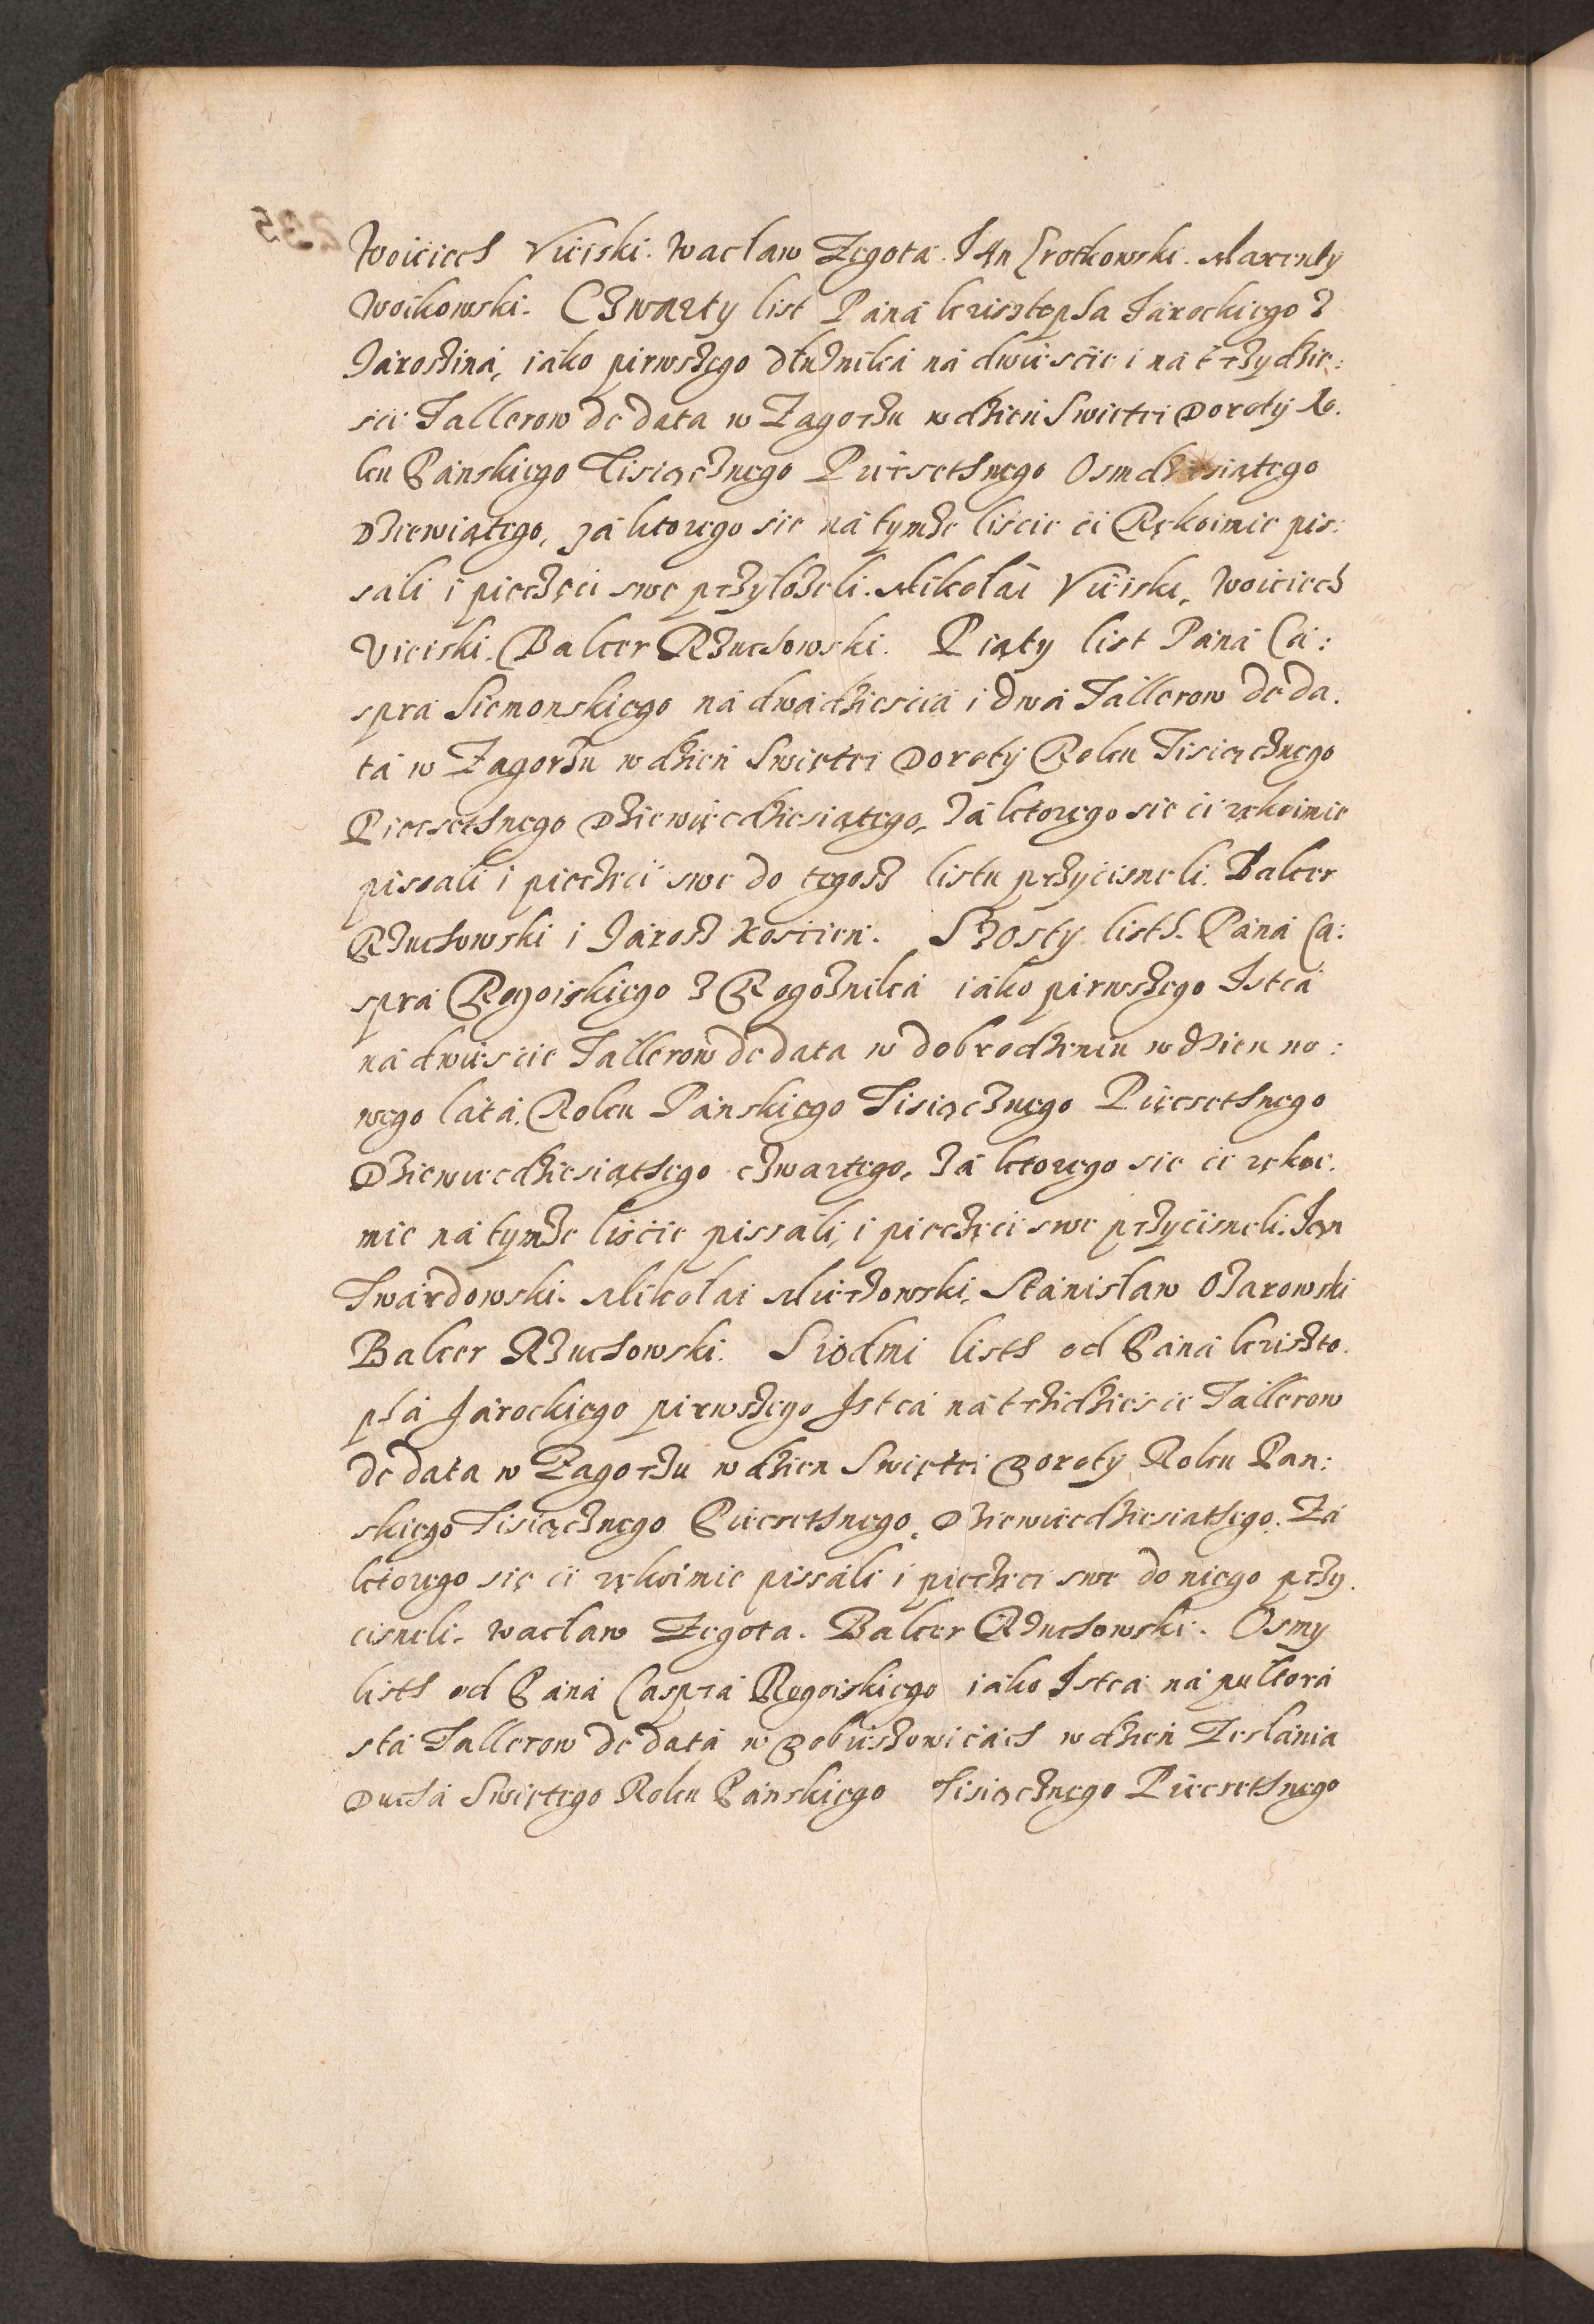 Woiciech Vieiski. Wacław Zegota. Jan Crotkowski. Marenty
Woikowski. Czwarty list Páná Krisztopha Járockiego z
Jároszina, iáko pirwszego dłużniká ná dwiescie i ná trzydzie:
sci Tallerow de data w Zagorzu w dzień Swietei Doroty Ro.
ku Pánskiego Tisiącznego Piecsethnego Osmdziesiątego
Dziewiątego, zá ktorego sie ná tymze liscie ci Rękoimie pis:
sáli i pieczęci swe przyłożeli. Mikołái Vieiski, Woiciech
Vieiski. Balcer Rzuchowski. Piąty list Páná Cá:
sprá Siemonskiego ná dwádziesciá i dwá Tállerow de da.
tá w Zagorzu w dzień Swiętei Doroty Roku Tisiącznego
Piecsethnego Dziewięcdziesiątego, Zá ktorego sie ci rękoimie
pissáli i pieczęci swe do tegosz listu przycisneli. Balcer
Rzuchowski i Járosz Koscien. Szosty listh. Páná Ca:
sprá Rogoiskiego z Rogożniká iáko pirwszego Istcá
ná dwiescie Tállerow de data w Dobrodzieniu w dzien no:
wego látá. Roku Pánskiego Tisiącznego Pięcsethnego
Dziewiecdziesiąthego czwartego, Zá ktorego sie ci rękoi.
mie ná tymze liscie pissáli, i pieczęci swe przycisneli. Jan
Twárdowski. Mikołái Mierzowski, Stánisław Ożarowski
Balcer Rzuchowski. Siodmi listh od Páná Kriszto.
phá Járockiego pirwszego Istcá ná trzidziesci Tállerow
de data w Zagorzu w dzien Swiętei Doroty Roku Pan:
skiego Tisiącznego Piecsethnego, Dziewiecdziesiathego. Zá
ktorego się ci rękoimie pissáli i pieczęci swe do niego przy.
cisneli. Wacław Zegota. Balcer Rzuchowski. Osmy
listh od Páná Casprá Rogoiskiego iáko Istcá ná pułtorá
stá Tallerow de datá w Dobieszowicách w dzień Zesłánia
Duchá Swiętego Roku Pánskiego Tisiącznego Piecsethnego